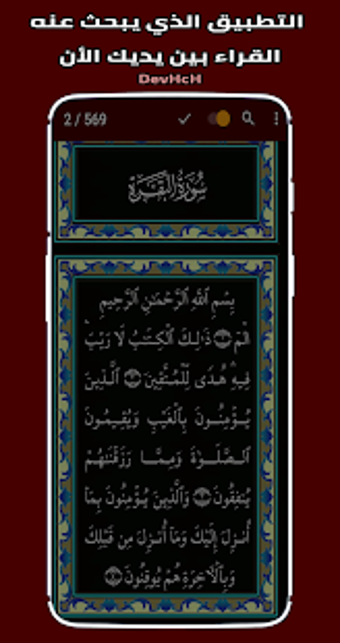 التطبيق الذي يبحث عنه
القراء بين يديك الأن
DevHcH
2 / 569
سُورَةُ البَقَرَةِ
بِسْمِ ٱللَّهِ ٱلرَّحْمَٰنِ ٱلرَّحِيمِ
الٓمٓ ۝ ذَٰلِكَ ٱلْكِتَٰبُ لَا رَيْبَۛ
فِيهِۛ هُدًى لِّلْمُتَّقِينَ ۝ ٱلَّذِينَ
يُؤْمِنُونَ بِٱلْغَيْبِ وَيُقِيمُونَ
ٱلصَّلَوٰةَ وَمِمَّا رَزَقْنَٰهُمْ
يُنفِقُونَ ۝ وَٱلَّذِينَ يُؤْمِنُونَ بِمَا
أُنزِلَ إِلَيْكَ وَمَا أُنزِلَ مِن قَبْلِكَ
وَبِٱلْأَخِرَةِ هُمْ يُوقِنُونَ ۝